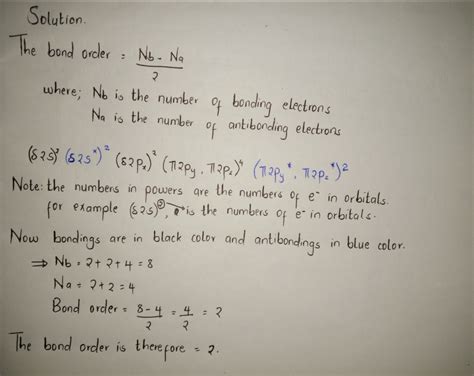 Solution.
The bond order = Nb - Na / 2
where; Nb is the number of bonding electrons
Na is the number of antibonding electrons
(δ2s)² (δ2s*)² (δ2pₓ)² (π2py, π2pz)⁴ (π2py*, π2pz*)²
Note: the numbers in powers are the numbers of e⁻ in orbitals.
for example (δ2s)②, is the numbers of e⁻ in orbitals.
Now bondings are in black color and antibondings in blue color.
⇒ Nb = 2 + 2 + 4 = 8
Na = 2 + 2 = 4
Bond order = 8 - 4 / 2 = 4 / 2 = 2
The bond order is therefore = 2.